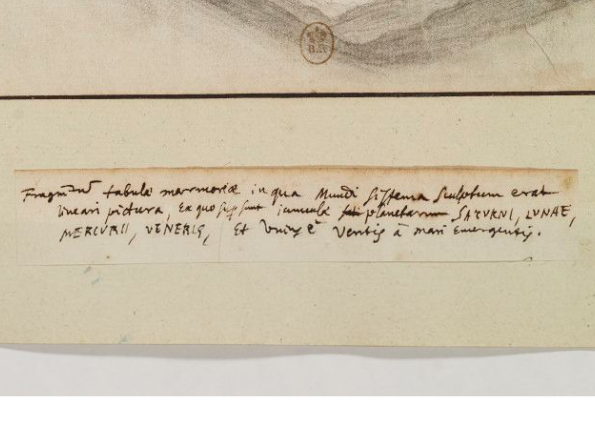 B.R
Fragmentū tabulæ marmoriæ in qua Mundi sistema sculptum erat
lineari pictura, Ex quo sunt iunculæ planetarum SATURNI, LUNAE,
MERCURII, VENERIS, Et Unius è Ventis à mari Emergentis.